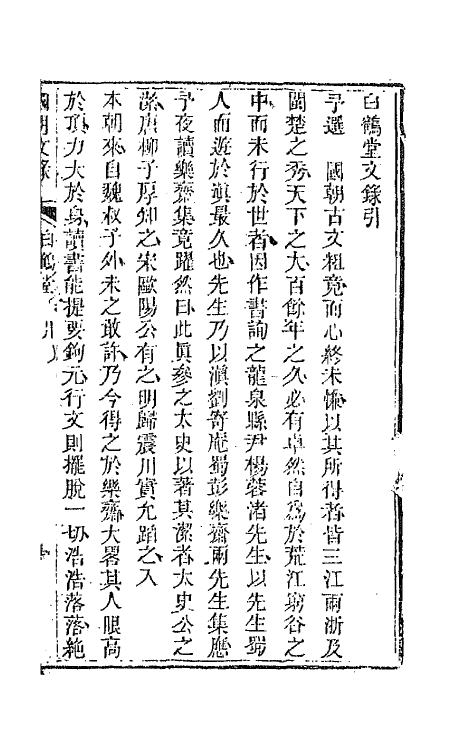 白鶴堂文錄引
予選　國朝古文粗竟而心終未慊以其所得者皆三江兩浙及
閩楚之秀天下之大百餘年之久必有卓然自爲於荒江窮谷之
中而未行於世者因作書詢之龍泉縣尹楊蓉渚先生以先生蜀
人而遊於滇最久也先生乃以滇劉寄庵蜀彭樂齋兩先生集應
予夜讀樂齋集竟躍然曰此眞參之太史以著其潔者太史公之
潔唐柳子厚知之宋歐陽公有之明歸震川實允蹈之入
本朝來自魏叔子外未之敢許乃今得之於樂齋大畧其人眼高
於頂力大於身讀書能提要鉤元行文則擺脫一切浩浩落落絶
國朝文錄　白鶴堂　引